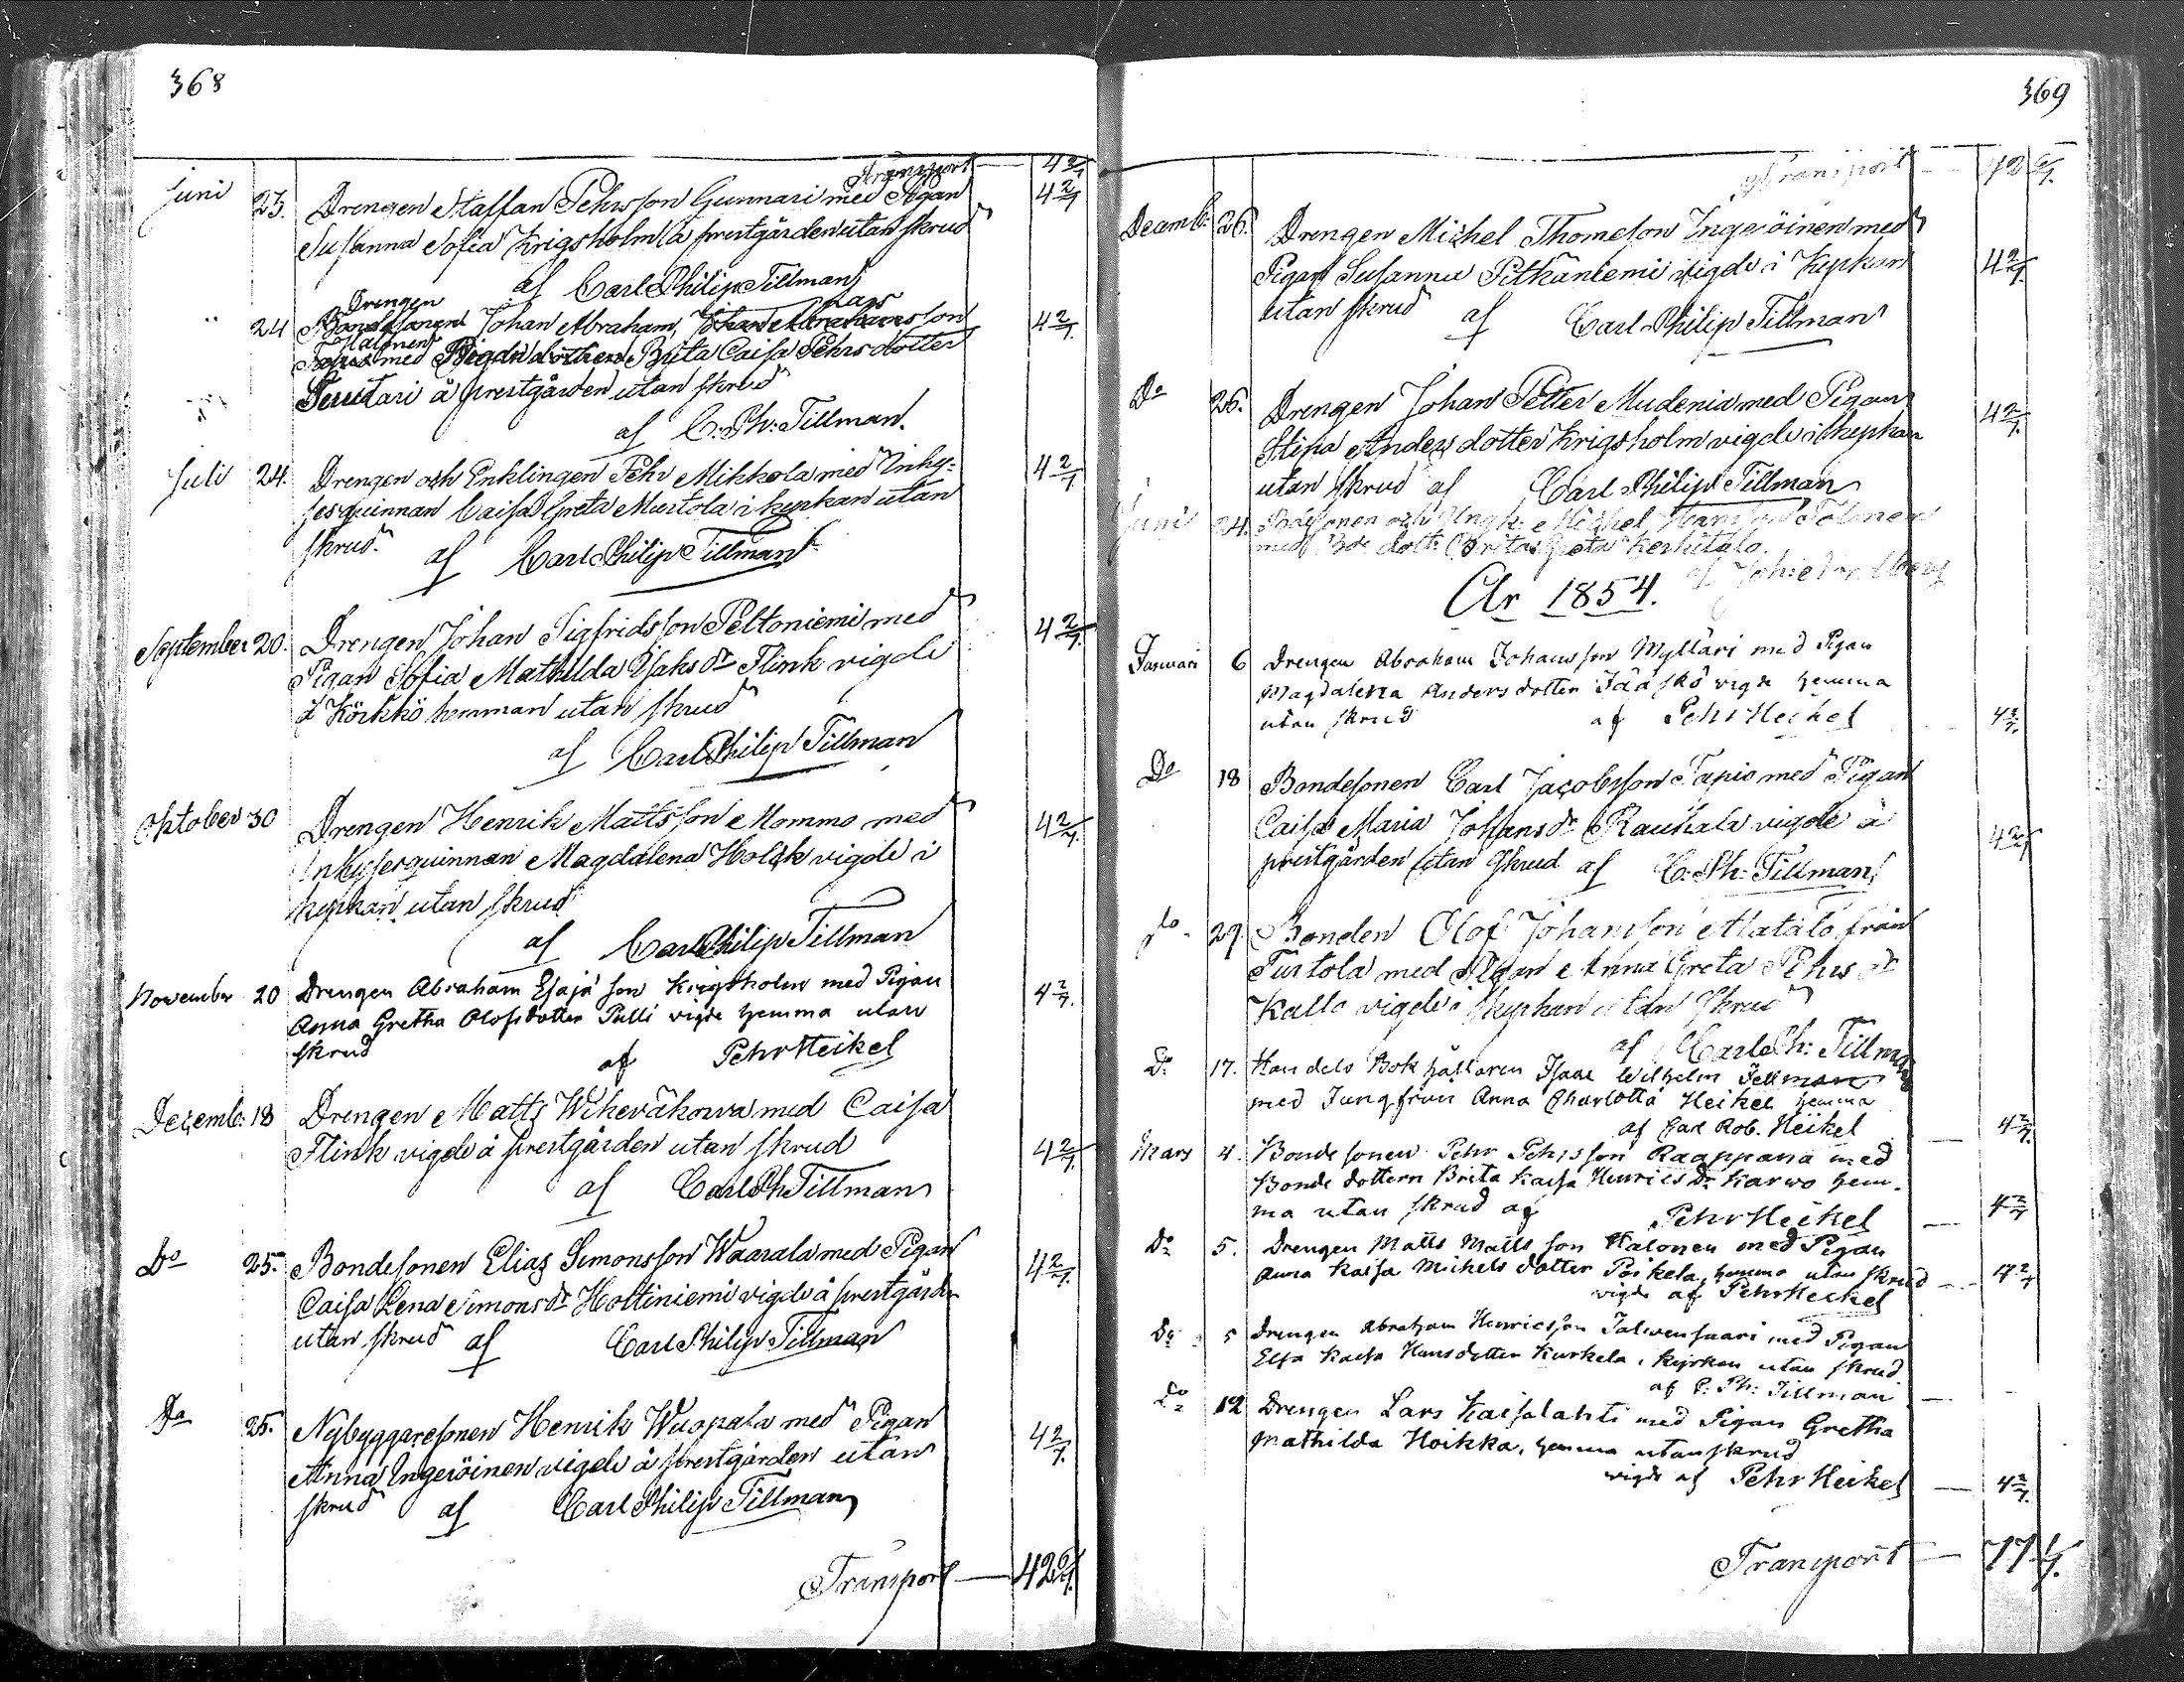 368
Transport — 4 2/7
Juni 23. Drengen Staffan Pehrsson Gunnari med Pigan 4 2/7
Susanna Sofia Krigsholm å prestgården utan skrud
af Carl Philip Tillman
Drengen Lars
" 24 Bondesonen Johan Abraham, Johan Abrahamsson 4 2/7
Halonen
med Pigan Brita Caisa Pehrsdotter
å prestgården utan skrud
af C. Ph: Tillman.
Juli 24. Drengen och Enklingen Pehr Mikkola med Inhy- 4 2/7
sesquinnan Caisa Greta Mustola i kyrkan utan
skrud. af Carl Philip Tillman
September 20. Drengen Johan Sigfridsson Peltoniemi med 4 2/7
Pigan Sofia Mathilda Isaksdr Flink vigde
å Körkkö hemman utan skrud
af Carl Philip Tillman
Oktober 30 Drengen Henrik Mattsson Mommo med 4 2/7
Inhysesquinnan Magdalena Holck vigde i
kyrkan utan skrud
af Carl Philip Tillman
November 20 Drengen Abraham Esaja son Krigsholm med Pigan 4 2/7.
Anna Gretha Olofsdotter Palli vigde hemma utan
skrud af Pehr Heikel
Decemb: 18 Drengen Matts Wikeväkowa med Caisa
Flink vigde å prestgården utan skrud 4 2/7.
af Carl Ph Tillman
Do 25. Bondesonen Elias Simonsson Waarala med Pigan 4 2/7.
Caisa Lena Simonsdr Holtiniemi vigde å prestgården
utan skrud af Carl Philip Tillman
Do 25. Nybyggaresonen Henrik Wuopala med Pigan 4 2/7.
Anna Ingeröinen vigde å prestgården utan
skrud af Carl Philip Tillman
Transport — 42 6/7.
369
Transport — 42 6/7.
Decemb: 26. Drengen Michel Thomeson Ingeröinen med
Pigan Susanna Pitkäniemi vigde i kyrkan 4 2/7.
utan skrud af Carl Philip Tillman
Do 26. Drengen Johan Petter Mudenia med Pigan 4 2/7.
Stina Andersdotter Krigsholm vigde i kyrkan
utan skrud af Carl Philip Tillman
Juni 24. Bdesonen och Ungk: Michel Hansson
med Bde dott: Brita Greta
af Joh:
År 1854.
Januari 6 Drengen Abraham Johansson Mylläri med Pigan
Magdalena Andersdotter Jääskö vigde hemma
utan skrud af Pehr Heikel 4 2/7.
Do 18 Bondesonen Carl Jacobsson Tapio med Pigan
Caisa Maria Johansdr Rauhala vigde å 4 2/7
prestgården utan skrud af C. Ph: Tillman
do 29. Bonden Olof Johansson Alatalo från
Turtola med Pigan Anna Greta Pehrsdr
Kallo vigde i kyrkan utan skrud
af Carl Ph: Tillman
Do 17. Handels Bokhållaren Isaac Wilhelm Fellman
med Jungfrun Anna Charlotta Heikel hemma
af Carl Rob. Heikel — 4 2/7.
Mars 4. Bondesonen Pehr Pehrsson Raappana med
Bonde dottern Brita Kaisa Henricsdr Karwo hem-
ma utan skrud af Pehr Heikel — 4 2/7
Do 5. Drengen Matts Matts son Halonen med Pigan
Anna Kaisa Michels dotter Poikela, hemma utan skrud — 4 2/7
vigde af Pehr Heikel
Do 5 Drengen Abraham Henricsson Jalwensaari med Pigan
Elsa Kaisa Hansdotter Kurkela i kyrkan utan skrud
af C. Ph: Tillman —
Do 12 Drengen Lars Kaisalahti med Pigan Gretha
Mathilda Hoikka, hemma utan skrud
vigde af Pehr Heikel — 4 2/7.
Transport — 77 1/7.